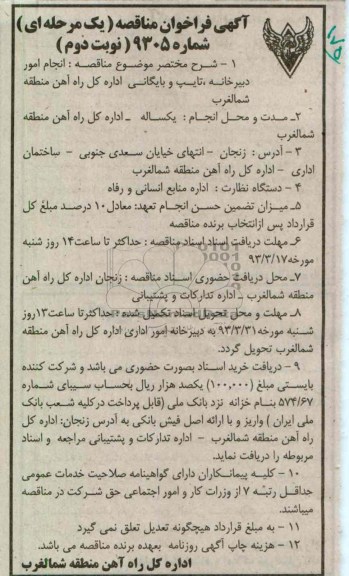 آگهی فراخوان مناقصه ( یک مرحله ای )
شماره ۹۳۰۵ ( نوبت دوم )
۱ - شرح مختصر موضوع مناقصه : انجام امور
دبیرخانه ،تایپ و بایگانی اداره کل راه آهن منطقه
شمالغرب
۲ـ مدت و محل انجام : یکساله ـ اداره کل راه آهن منطقه
شمالغرب
۳ - آدرس : زنجان - انتهای خیابان سعدی جنوبی - ساختمان
اداری - اداره کل راه آهن منطقه شمالغرب
۴ - دستگاه نظارت : اداره منابع انسانی و رفاه
۵ـ میزان تضمین حسن انجام تعهد: معادل۱۰ درصد مبلغ کل
قرارداد پس ازانتخاب برنده مناقصه
۶ـ مهلت دریافت اسناد مناقصه : حداکثر تا ساعت۱۴ روز شنبه
مورخه۹۳/۳/۱۷
۷ـ محل دریافت حضوری اسناد مناقصه : زنجان اداره کل راه آهن
منطقه شمالغرب ـ اداره تدارکات و پشتیبانی
۸ ـ مهلت و محل تحویل اسناد تکمیل شده : حداکثرتا ساعت۱۳روز
شنبه مورخه۹۳/۳/۳۱ به دبیرخانه امور اداری اداره کل راه آهن منطقه
شمالغرب تحویل گردد.
۹ - دریافت خرید اسناد بصورت حضوری می باشد و شرکت کننده
بایستی مبلغ (۱۰۰,۰۰۰) یکصد هزار ریال بحساب سیبای شماره
۵۷۴/۶۷ بنام خزانه نزد بانک ملی (قابل پرداخت درکلیه شعب بانک
ملی ایران ) واریز و با ارائه اصل فیش بانکی به آدرس زنجان: اداره کل
راه آهن منطقه شمالغرب - اداره تدارکات و پشتیبانی مراجعه و اسناد
مربوطه را دریافت نماید.
۱۰ - کلیه پیمانکاران دارای گواهینامه صلاحیت خدمات عمومی
حداقل رتبه ۷ از وزرات کار و امور اجتماعی حق شرکت در مناقصه
میباشند.
۱۱ - به مبلغ قرارداد هیچگونه تعدیل تعلق نمی گیرد
۱۲ - هزینه چاپ آگهی روزنامه بعهده برنده مناقصه می باشد.
اداره کل راه آهن منطقه شمالغرب